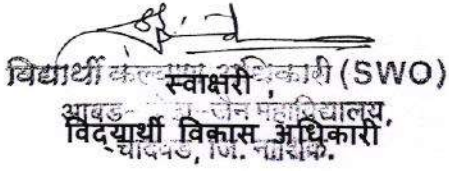 विद्यार्थी कल्याण अधिकारी (SWO)
स्वाक्षरी,
आबड- जैन महाविद्यालय,
विद्यार्थी विकास अधिकारी
चांदवड, जि. नाशिक.